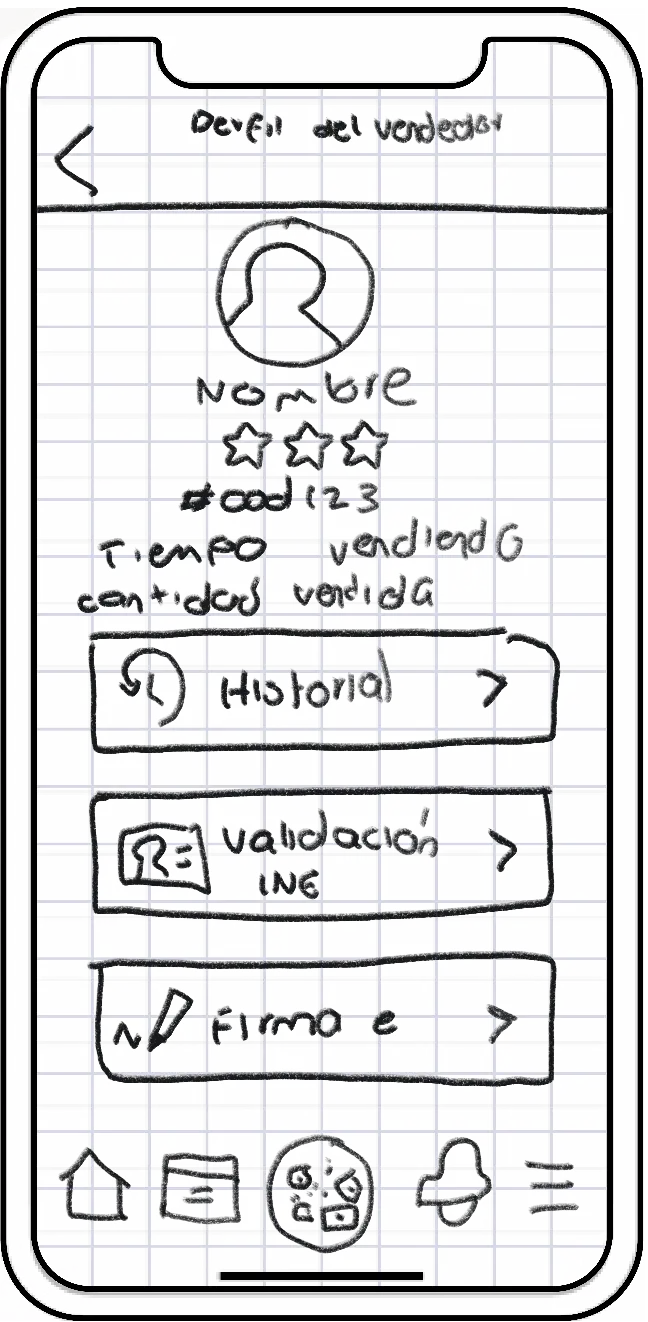 Perfil del vendedor
Nombre
#cod123
Tiempo vendiendo
cantidad vendida
Historial
validación
INE
Firma e